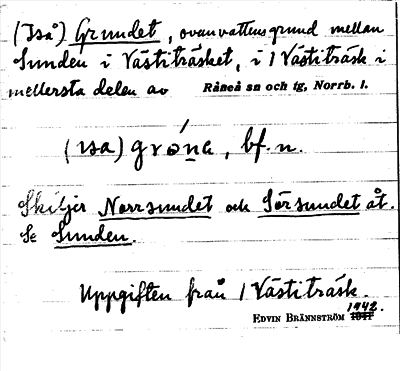 (Iså) Grundet, ovanvattensgrund mellan
Sunden i Västiträsket, i 1 Västiträsk i
mellersta delen av Råneå sn och tg, Norrb. l.
(ısa) gróna, bf. n.
Skiljer Norrsundet och Sörsundet åt.
Se Sunden.
Uppgiften från 1 Västiträsk.
1942.
EDVIN BRÄNNSTRÖM 1941